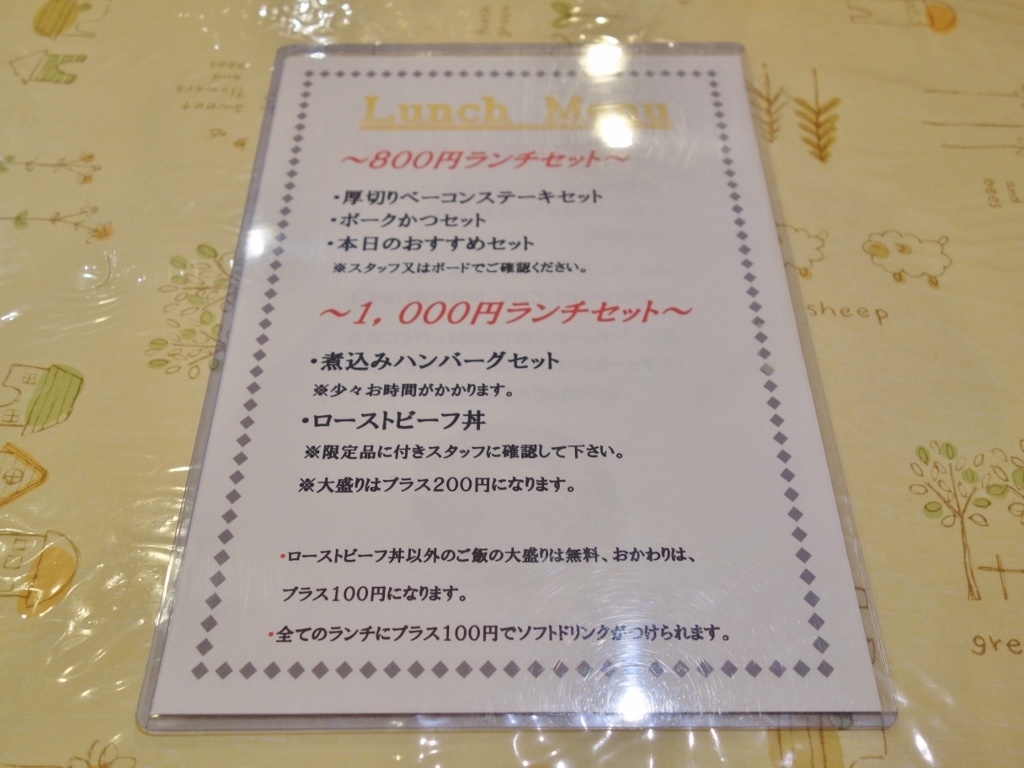 Lunch Menu
～800円ランチセット～
・厚切りベーコンステーキセット
・ポークかつセット
・本日のおすすめセット
※スタッフ又はボードでご確認ください。
～1,000円ランチセット～
・煮込みハンバーグセット
※少々お時間がかかります。
・ローストビーフ丼
※限定品に付きスタッフに確認して下さい。
※大盛りはプラス200円になります。
・ローストビーフ丼以外のご飯の大盛りは無料、おかわりは、
プラス100円になります。
・全てのランチにプラス100円でソフトドリンクがつけられます。
sheep
gre